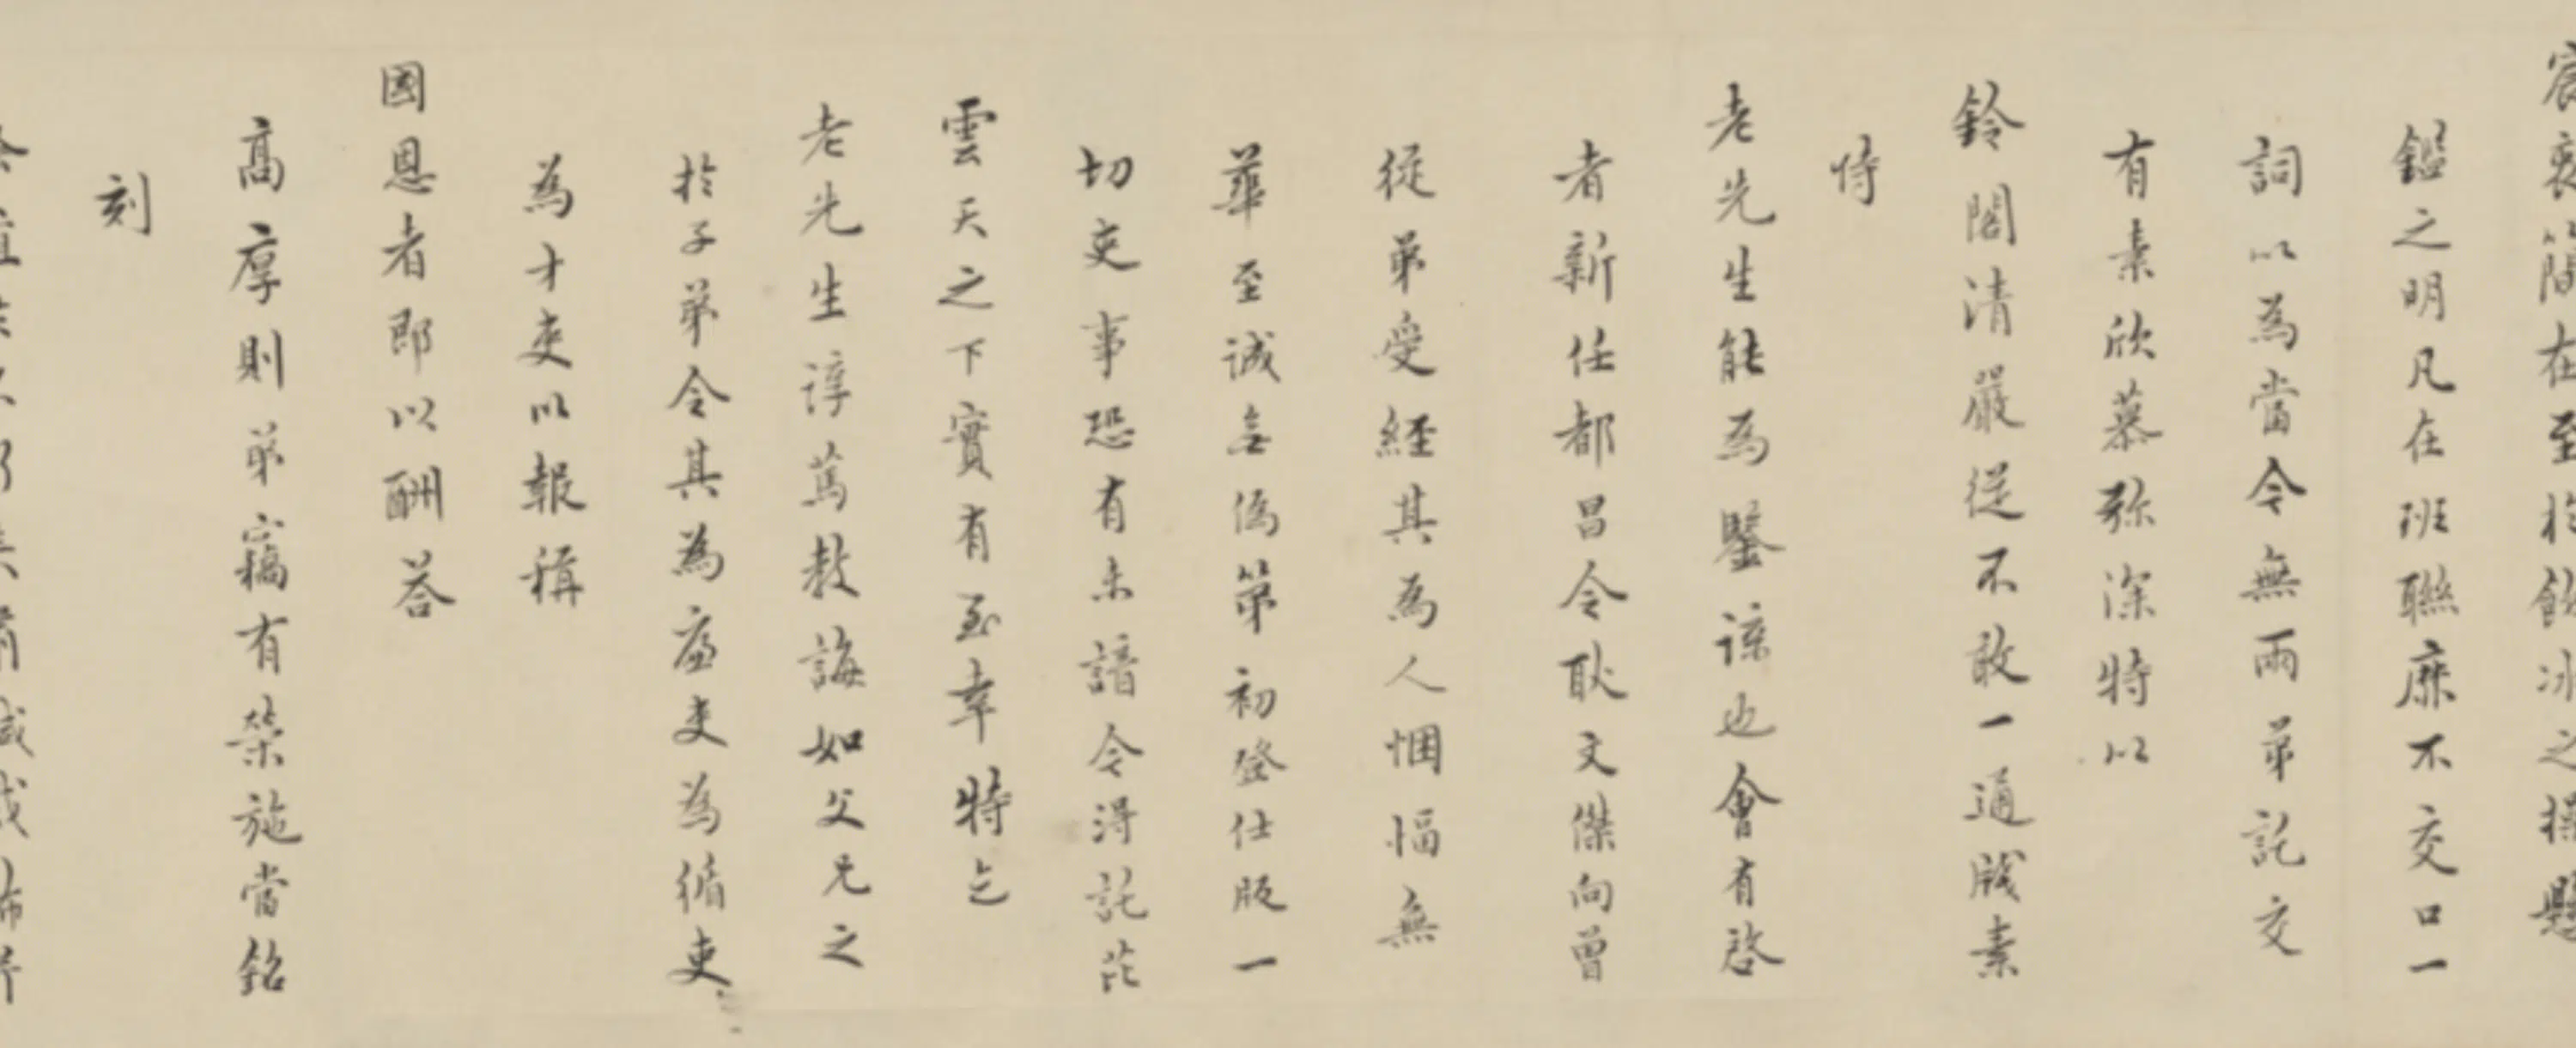 宸衷簡在至於飲冰之操懸
鑑之明凡在班聯靡不交口一
詞以為當今無兩弟託交
有素欣慕弥深特以
鈴閣清嚴従不敢一通牋素
恃
老先生能為鑒諒也會有啓
者新任都昌令耿文傑向曾
従弟受經其為人悃愊無
華至誠無偽第初登仕版一
切吏事恐有未諳今得託茈
雲天之下實有至幸特乞
老先生諄篤教誨如父兄之
於子弟令其為廉吏為循吏
為才吏以報稱
國恩者即以酬荅
高厚則弟竊有榮施當銘
刻